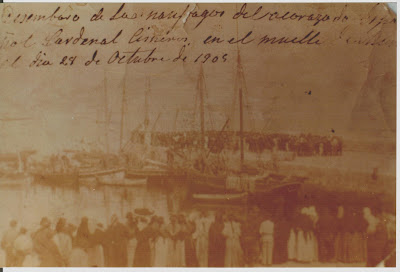 Desembarco de los naufragos del acorazado
Cardenal Cisneros, en el muelle
el dia 28 de Octubre de 1905